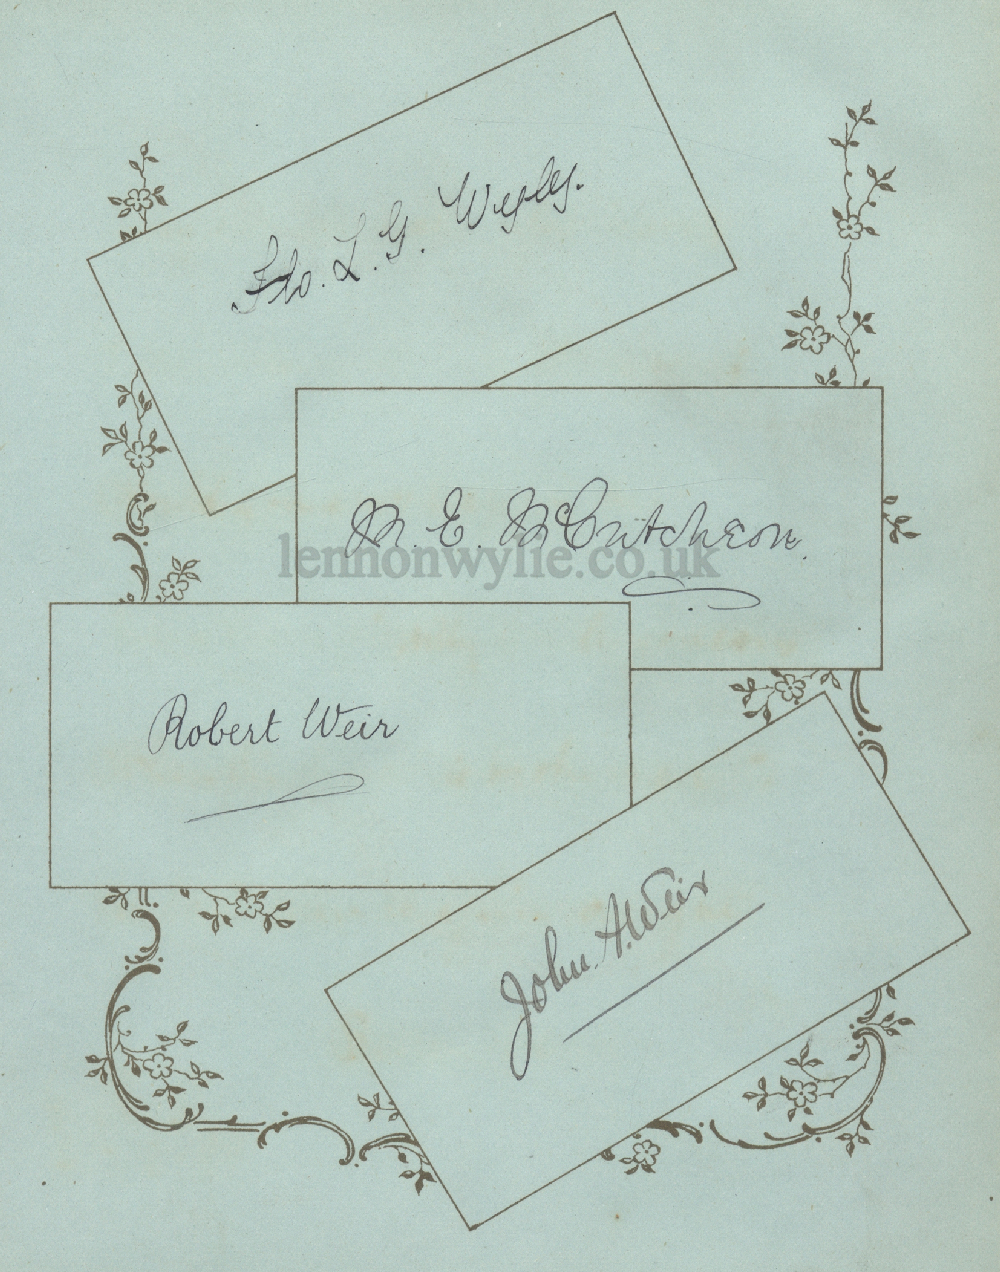 Flo. L. G. Wyly.
M. E. McCutcheon.
lennonwylie.co.uk
Robert Weir
John A. Weir